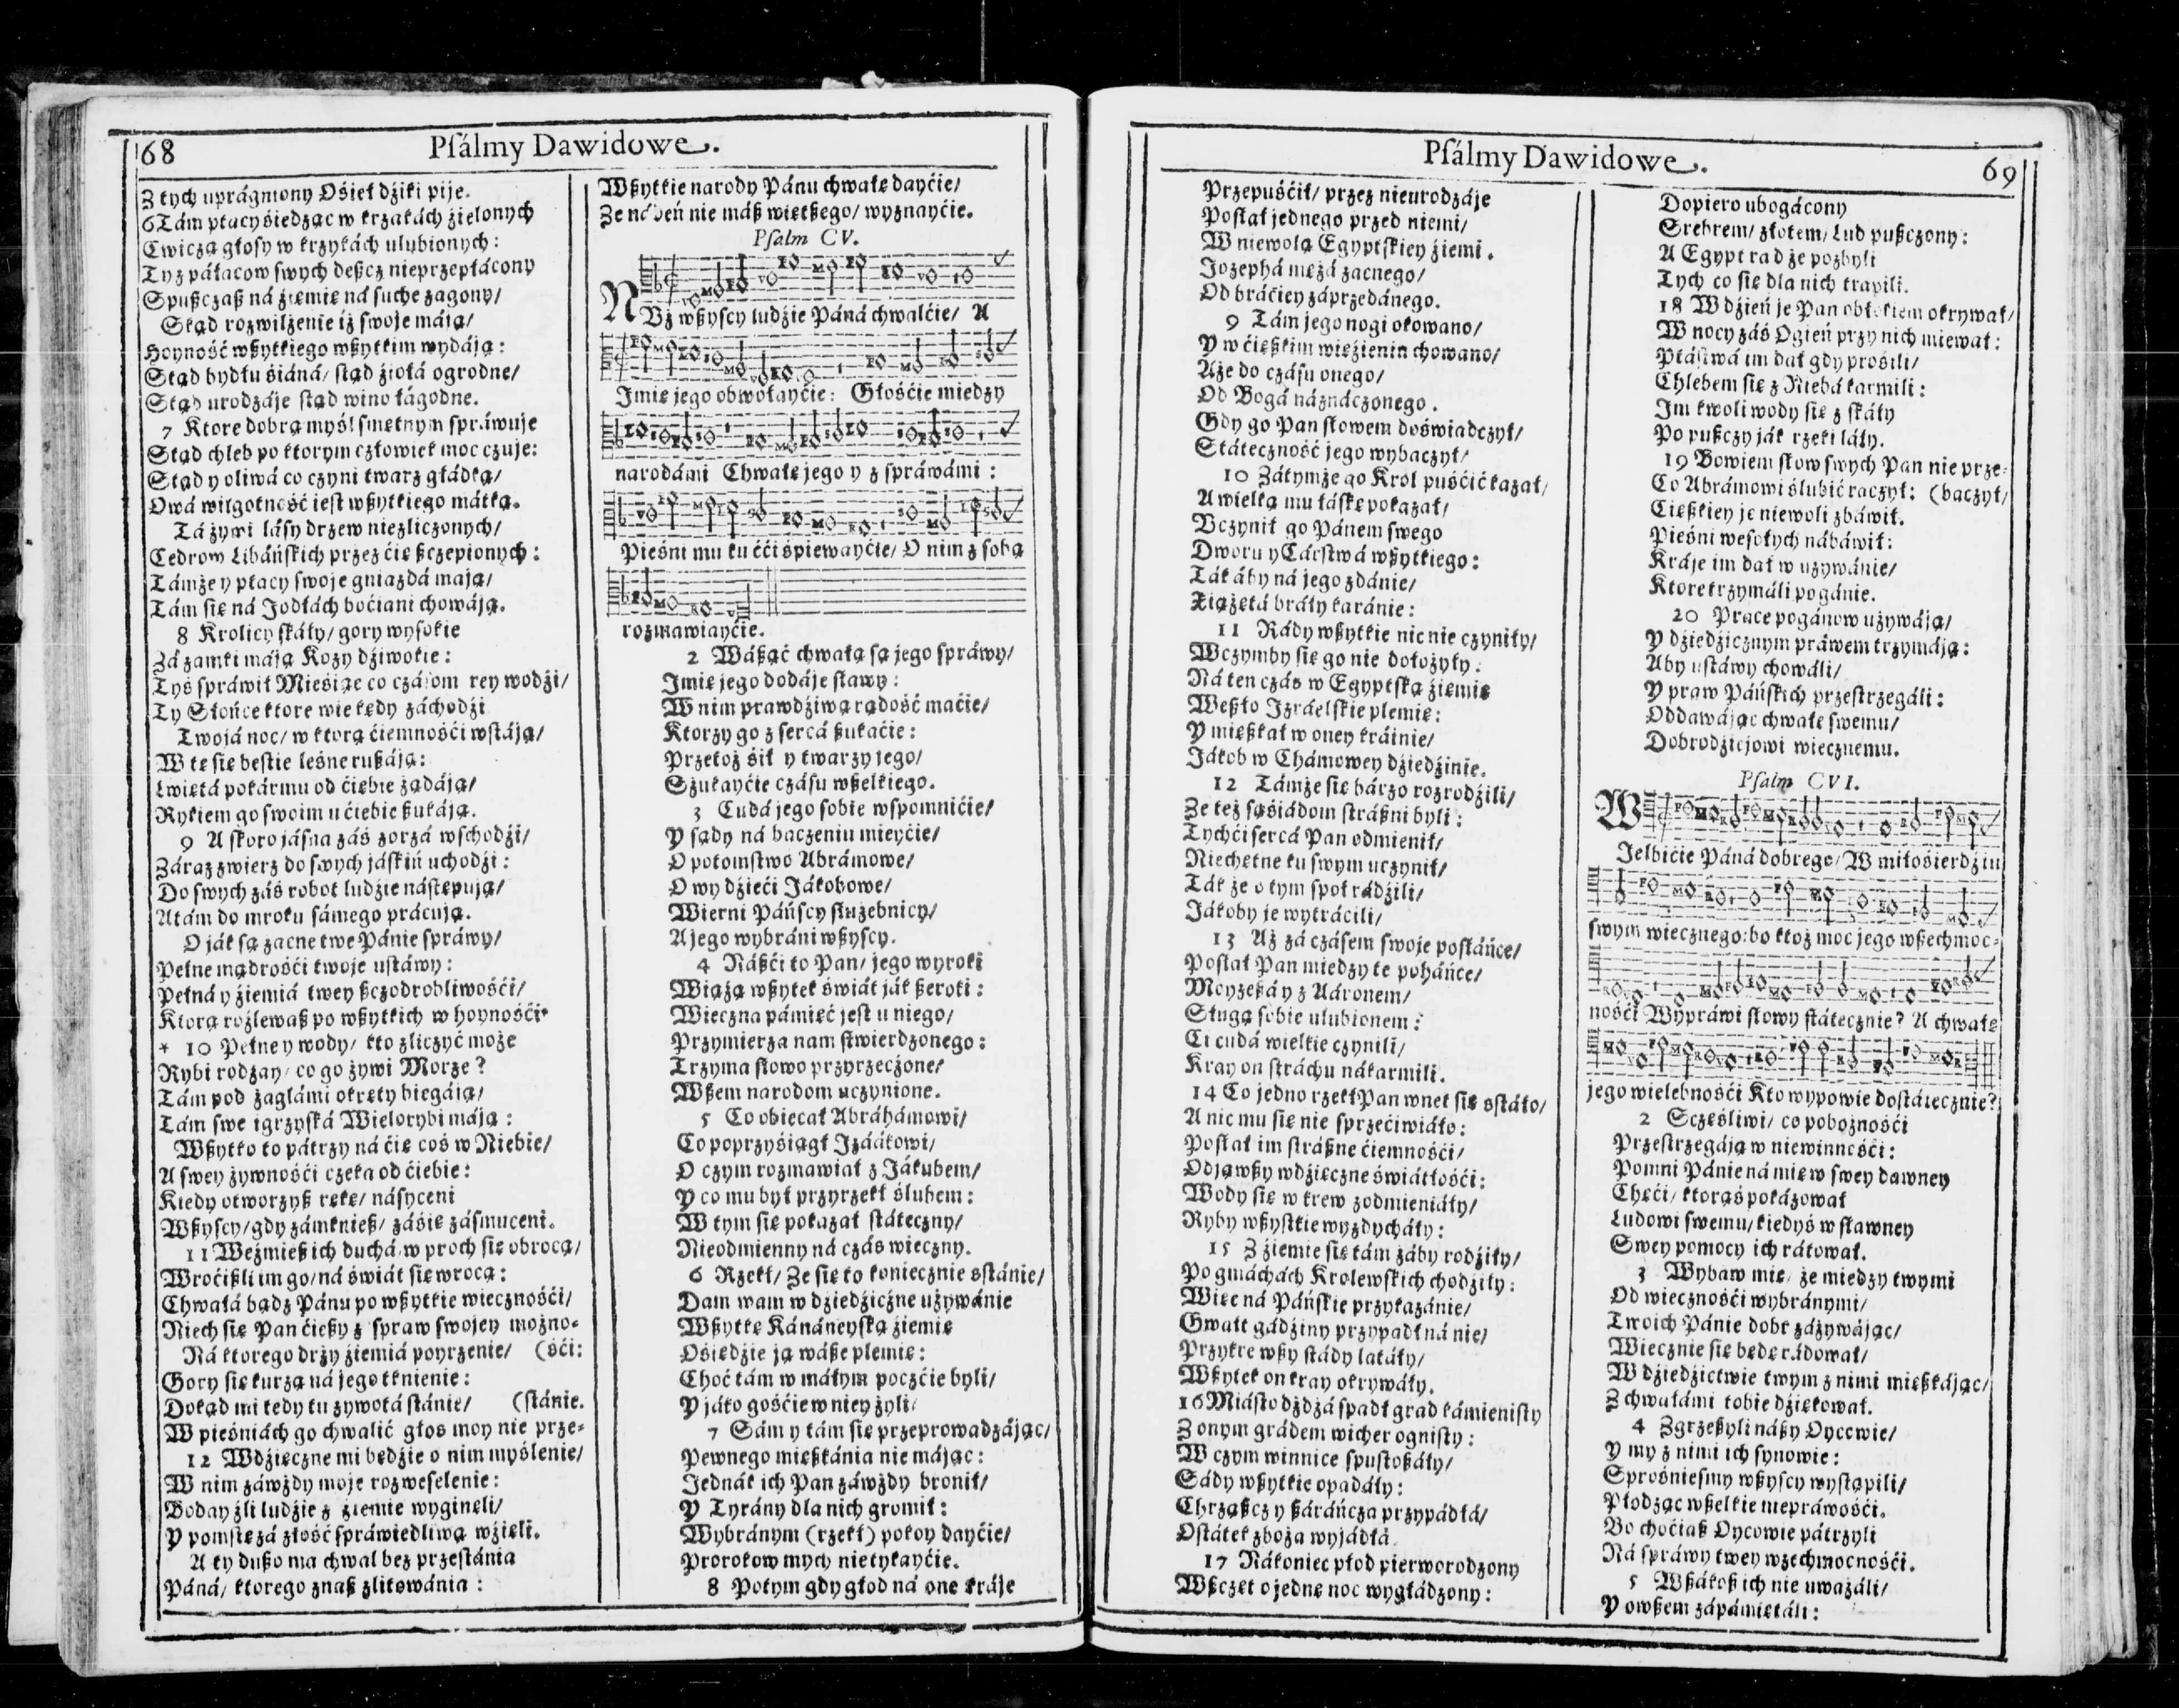 68 Psálmy Dawidowe.
Z tych uprágniony Ośieł dźiki pije.
6 Tám ptacy śiedząc w krzakách źielonych
Cwiczą głosy w krzykách ulubionych:
Ty z páłacow swych deßcz nieprzepłácony
Spußczaß ná źiemię ná suche zagony/
Stąd rozwilżenie iż swoje máją/
Hoyność wßytkiego wßytkim wydáją:
Stąd bydłu śiáná/ stąd źiołá ogrodne/
Stąd urodzáje stąd wino łágodne.
7 Ktore dobrą myśl smętnym spráwuje
Stąd chleb po ktorym człowiek moc czuje:
Stąd y oliwá co czyni twarz głádką/
Owá wilgotność jest wßytkiego mátką.
Tá żywi lásy drzew niezliczonych/
Cedrow Libáńskich przez cię ßczepionych:
Támże y ptacy swoje gniazdá mają/
Tám się ná Jodłách boćiani chowáją.
8 Krolicy skáły/ gory wysokie
Zá zamki máją Kozy dźiwokie:
Tyś spráwił Mieśiąc co czásom rey wodźi/
Ty Słońce ktore wie kędy záchodźi
Twojá noc/ w ktorą ćiemnośći wstáją/
W tę się bestie leśne rußáją:
Lwiętá pokármu od ćiebie żądáją/
Rykiem go swoim u ćiebie ßukáją.
9 A skoro jásna záś zorzá wschodźi/
Záraz zwierz do swych jáskiń uchodźi:
Do swych záś robot ludźie nástępują/
A tám do mroku sámego prácują.
O ják są zacne twe Pánie spráwy/
Pełne mądrośći twoje ustáwy:
Pełná y źiemiá twey ßczodrobliwośći/
Ktorą rozlewaß po wßytkich w hoynośći.
* 10 Pełne y wody/ kto zliczyć może
Rybi rodzay/ co go żywi Morze?
Tám pod żaglámi okręty biegáją/
Tám swe igrzyská Wielorybi máją:
Wßytko to pátrzy ná ćię coś w Niebie/
A swey żywnośći czeka od ćiebie:
Kiedy otworzyß rękę/ násyceni
Wßyscy/ gdy zámknieß/ záśię zásmuceni.
11 Weźmieß ich duchá/ w proch się obrocą/
Wroćißli im go/ ná świát się wrocą:
Chwałá bądz Pánu po wßytkie wiecznośći/
Niech się Pan ćießy z spraw swojey możno-
Ná ktorego drży źiemiá poyrzenie/ (śći:
Gory się kurzą ná jego tknienie:
Dokąd mi tedy tu żywotá stánie/ (stánie.
W pieśniách go chwalić głos moy nie prze-
12 Wdźięczne mi będźie o nim myślenie/
W nim záwżdy moje rozweselenie:
Boday źli ludźie z źiemie wyginęli/
Y pomstę zá złość spráwiedliwą wźięli.
A ty dußo ma chwal bez przestánia
Páná/ ktorego znaß zlitowánia:
Wßytkie narody Pánu chwałę dayćie/
Ze náden nie máß większego/ wyznayćie.
Psalm CV.
NUż wßyscy ludźie Páná chwalćie/ A
Imię jego obwołayćie: Głośćie między
narodámi Chwałę jego y z spráwámi:
Pieśni mu ku cći śpiewayćie/ O nim z sobą
rozmawiayćie.
2 Wáßąć chwałą są jego spráwy/
Imię jego dodáje sławy:
W nim prawdźiwą rádość maćie/
Ktorzy go z sercá ßukaćie:
Przetoż śił y twarzy jego/
Szukayćie czásu wßelkiego.
3 Cudá jego sobie wspomnićie/
Y sądy ná baczeniu mieyćie/
O potomstwo Abrámowe/
O wy dźieći Jákobowe/
Wierni Páńscy służebnicy/
A jego wybráni wßyscy.
4 Náßći to Pan/ jego wyroki
Wiążą wßytek świát ják ßeroki:
Wieczna pámięć jest u niego/
Przymierza nam stwierdzonego:
Trzyma słowo przyrzeczone/
Wßem narodom uczynione.
5 Co obiecał Abráhámowi/
Co poprzyśiągł Izáákowi/
O czym rozmawiał z Jákubem/
Y co mu był przyrzekł ślubem:
W tym się pokazał státeczny/
Nieodmienny ná czás wieczny.
6 Rzekł/ Ze się to koniecznie sstánie/
Dam wam w dźiedźiczne używánie
Wßytkę Kánáneyską źiemię
Ośiędźie ją wáße plemię:
Choć tám w máłym poczćie byli/
Y jáko gośćie w niey żyli/
7 Sám y tám się przeprowadzájąc/
Pewnego mießkánia nie májąc:
Jednák ich Pan záwżdy bronił/
Y Tyrány dla nich gromił:
Wybránym (rzekł) pokoy dayćie/
Prorokow mych nie tykayćie.
8 Potym gdy głod ná one kráje
Psálmy Dawidowe. 69
Przepuśćił/ przez nieurodzáje
Posłał jednego przed niemi/
W niewolą Egyptskiey źiemi.
Jozephá mężá zacnego/
Od bráćiey záprzedánego.
9 Tám jego nogi okowano/
Y w ćięßkim więźieniu chowano/
Aże do czásu onego/
Od Bogá náznáczonego.
Gdy go Pan słowem doświadczył/
Státeczność jego wybaczył/
10 Zátymże go Krol puśćić kazał/
A wielką mu łáskę pokazał/
Uczynił go Pánem swego
Dworu y Cárstwá wßytkiego:
Ták áby ná jego zdánie/
Xiążętá bráły karánie:
11 Rády wßytkie nic nie czyniły/
W czymby się go nie dołożyły:
Ná ten czás w Egyptską źiemię
Weßło Izráelskie plemię:
Y mießkał w oney kráinie/
Jákob w Chámowey dźiedźinie.
12 Támże się bárzo rozrodźili/
Ze też sąśiádom stráßni byli:
Tychći sercá Pan odmienił/
Niechętne ku swym uczynił/
Ták że o tym społ rádźili/
Jákoby je wytráćili/
13 Aż zá czásem swoje posłáńce/
Posłał Pan między te poháńce/
Moyzeßá y z Aáronem/
Sługą sobie ulubionem:
Ci cudá wielkie czynili/
Kray on stráchu nákarmili.
14 Co jedno rzekł Pan wnet się sstáło/
A nic mu się nie sprzećiwiáło:
Posłał im stráßne ćiemnośći/
Odjąwßy wdźięczne świátłośći:
Wody się w krew zodmieniáły/
Ryby wßystkie wyzdycháły:
15 Z źiemie się tám żáby rodźiły/
Po gmáchách Krolewskich chodźiły:
Więc ná Páńskie przykazánie/
Gwałt gádźiny przypadł ná nie/
Przykre wßy stády latáły/
Wßytek on kray okrywáły.
16 Miásto dżdżá spadł grad kámienisty
Z onym grádem wicher ognisty:
W czym winnice spustoßáły/
Sády wßytkie opadáły:
Chrząßcz y ßáráńcza przypádłá/
Ostátek zboża wyjádłá.
17 Nákoniec płod pierworodzony
Wßczęt o jednę noc wygłádzony:
Dopiero ubogácony
Srebrem/ złotem/ Lud pußczony:
A Egypt rad że pozbyli
Tych co się dla nich trapili.
18 W dźień je Pan obłokiem okrywał/
W nocy záś Ogień przy nich miewał:
Ptástwá im dał gdy prośili/
Chlebem się z Niebá karmili:
Im kwoli wody się z skáły
Po pußczy ják rzeki láły.
19 Bowiem słow swych Pan nie prze-
Co Abrámowi ślubić raczył: (baczył/
Cięßkiey je niewoli zbáwił.
Pieśni wesołych nábáwił:
Kráje im dał w używánie/
Ktore trzymáli pogánie.
20 Prace pogánow używáją/
Y dźiedźicznym práwem trzymáją:
Aby ustáwy chowáli/
Y praw Páńskich przestrzegáli:
Oddawájąc chwałę swemu/
Dobrodźiejowi wiecznemu.
Psalm CVI.
WJelbićie Páná dobrego/ W miłośierdźiu
swym wiecznego: bo ktoż moc jego wßechmoc-
nośći Wypráwi słowy státecznie? A chwałę
jego wielebnośći Kto wypowie dostátecznie?
2 Sczęśliwi/ co pobożnośći
Przestrzegáją w niewinnośći:
Pomni Pánie ná mię w swey dawney
Chęći/ ktorąś pokázował
Ludowi swemu/ kiedyś w sławney
Swey pomocy ich rátował.
3 Wybaw mię/ że między twymi
Od wiecznośći wybránymi/
Twoich Pánie dobr záżywájąc/
Wiecznie się będę rádował/
W dźiedźictwie twym z nimi mießkájąc/
Z chwałámi tobie dźiękował.
4 Zgrzeßyli náßy Oycowie/
Y my z nimi ich synowie:
Sprośnieśmy wßyscy wystąpili/
Płodząc wßelkie niepráwośći.
Bo choćiaß Oycowie pátrzyli
Ná spráwy twey wzechmocnośći.
5 Wßákoß ich nie uważáli/
Y owßem zápámiętáli: